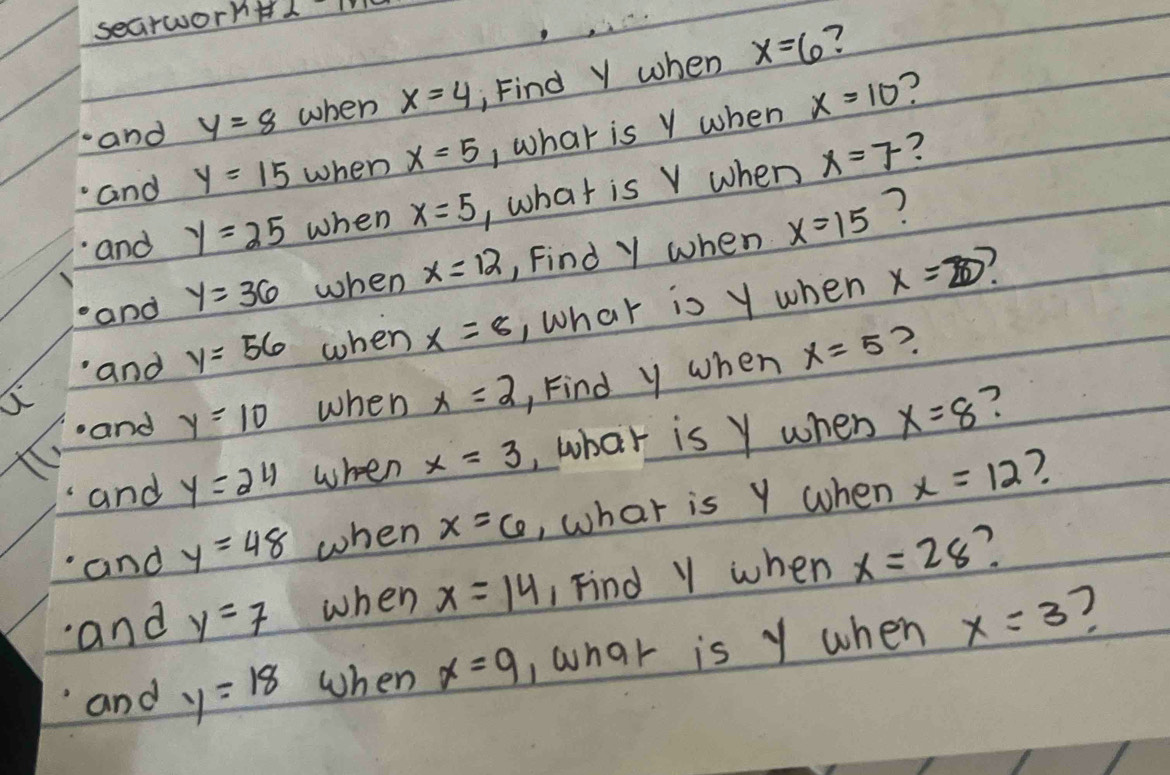 searwork#1
•and y=8 when x=4, Find y when x=6?
•and y=15 when x=5, what is y when x=10?
•and y=25 when x=5, what is y when x=7?
•and y=36 when x=12, Find y when x=15?
•and y=56 when x=8, what is y when x=?
•and y=10 when x=2, Find y when x=5?
•and y=24 when x=3, what is y when x=8?
•and y=48 when x=6, what is y when x=12?
•and y=7 when x=14, Find y when x=28?
•and y=18 when x=9, what is y when x=3?